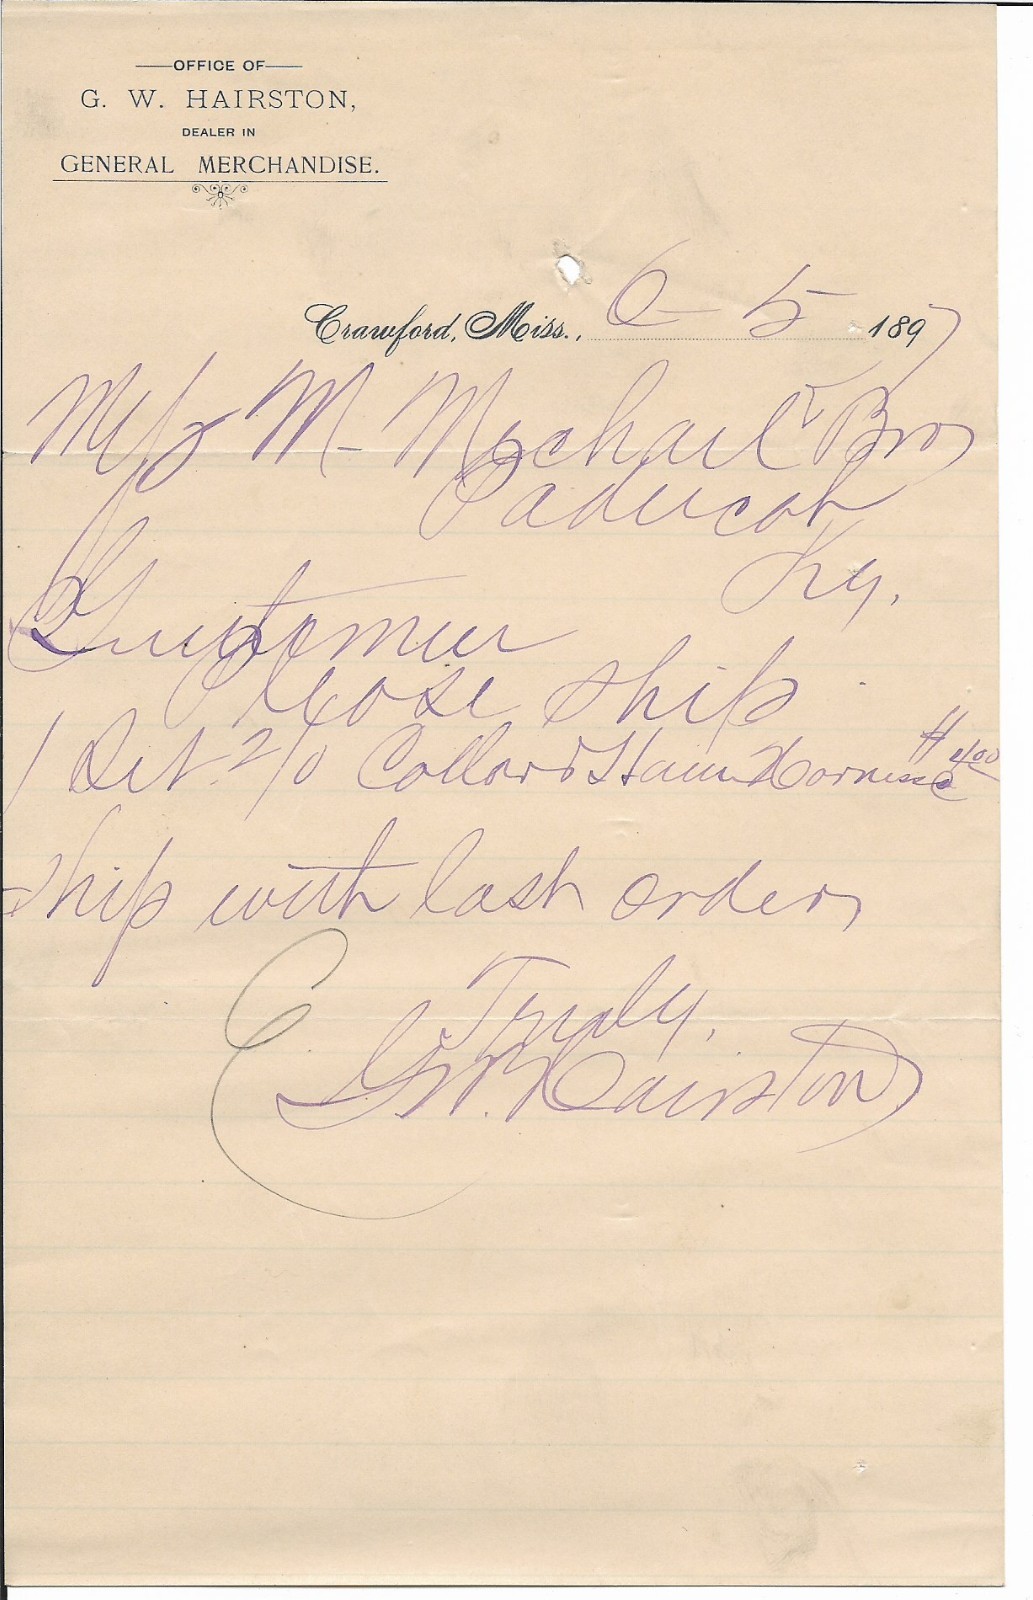 OFFICE OF
G. W. HAIRSTON,
DEALER IN
GENERAL MERCHANDISE.
Crawford, Miss., 6-5 1897
M. Michael & Bro
Paducah
Ky.
Gentlemen
Please ship
1 Set 2/0 Collar & Hame Harness @ $4.00
Ship with last order,
Truly,
G.W. Hairston